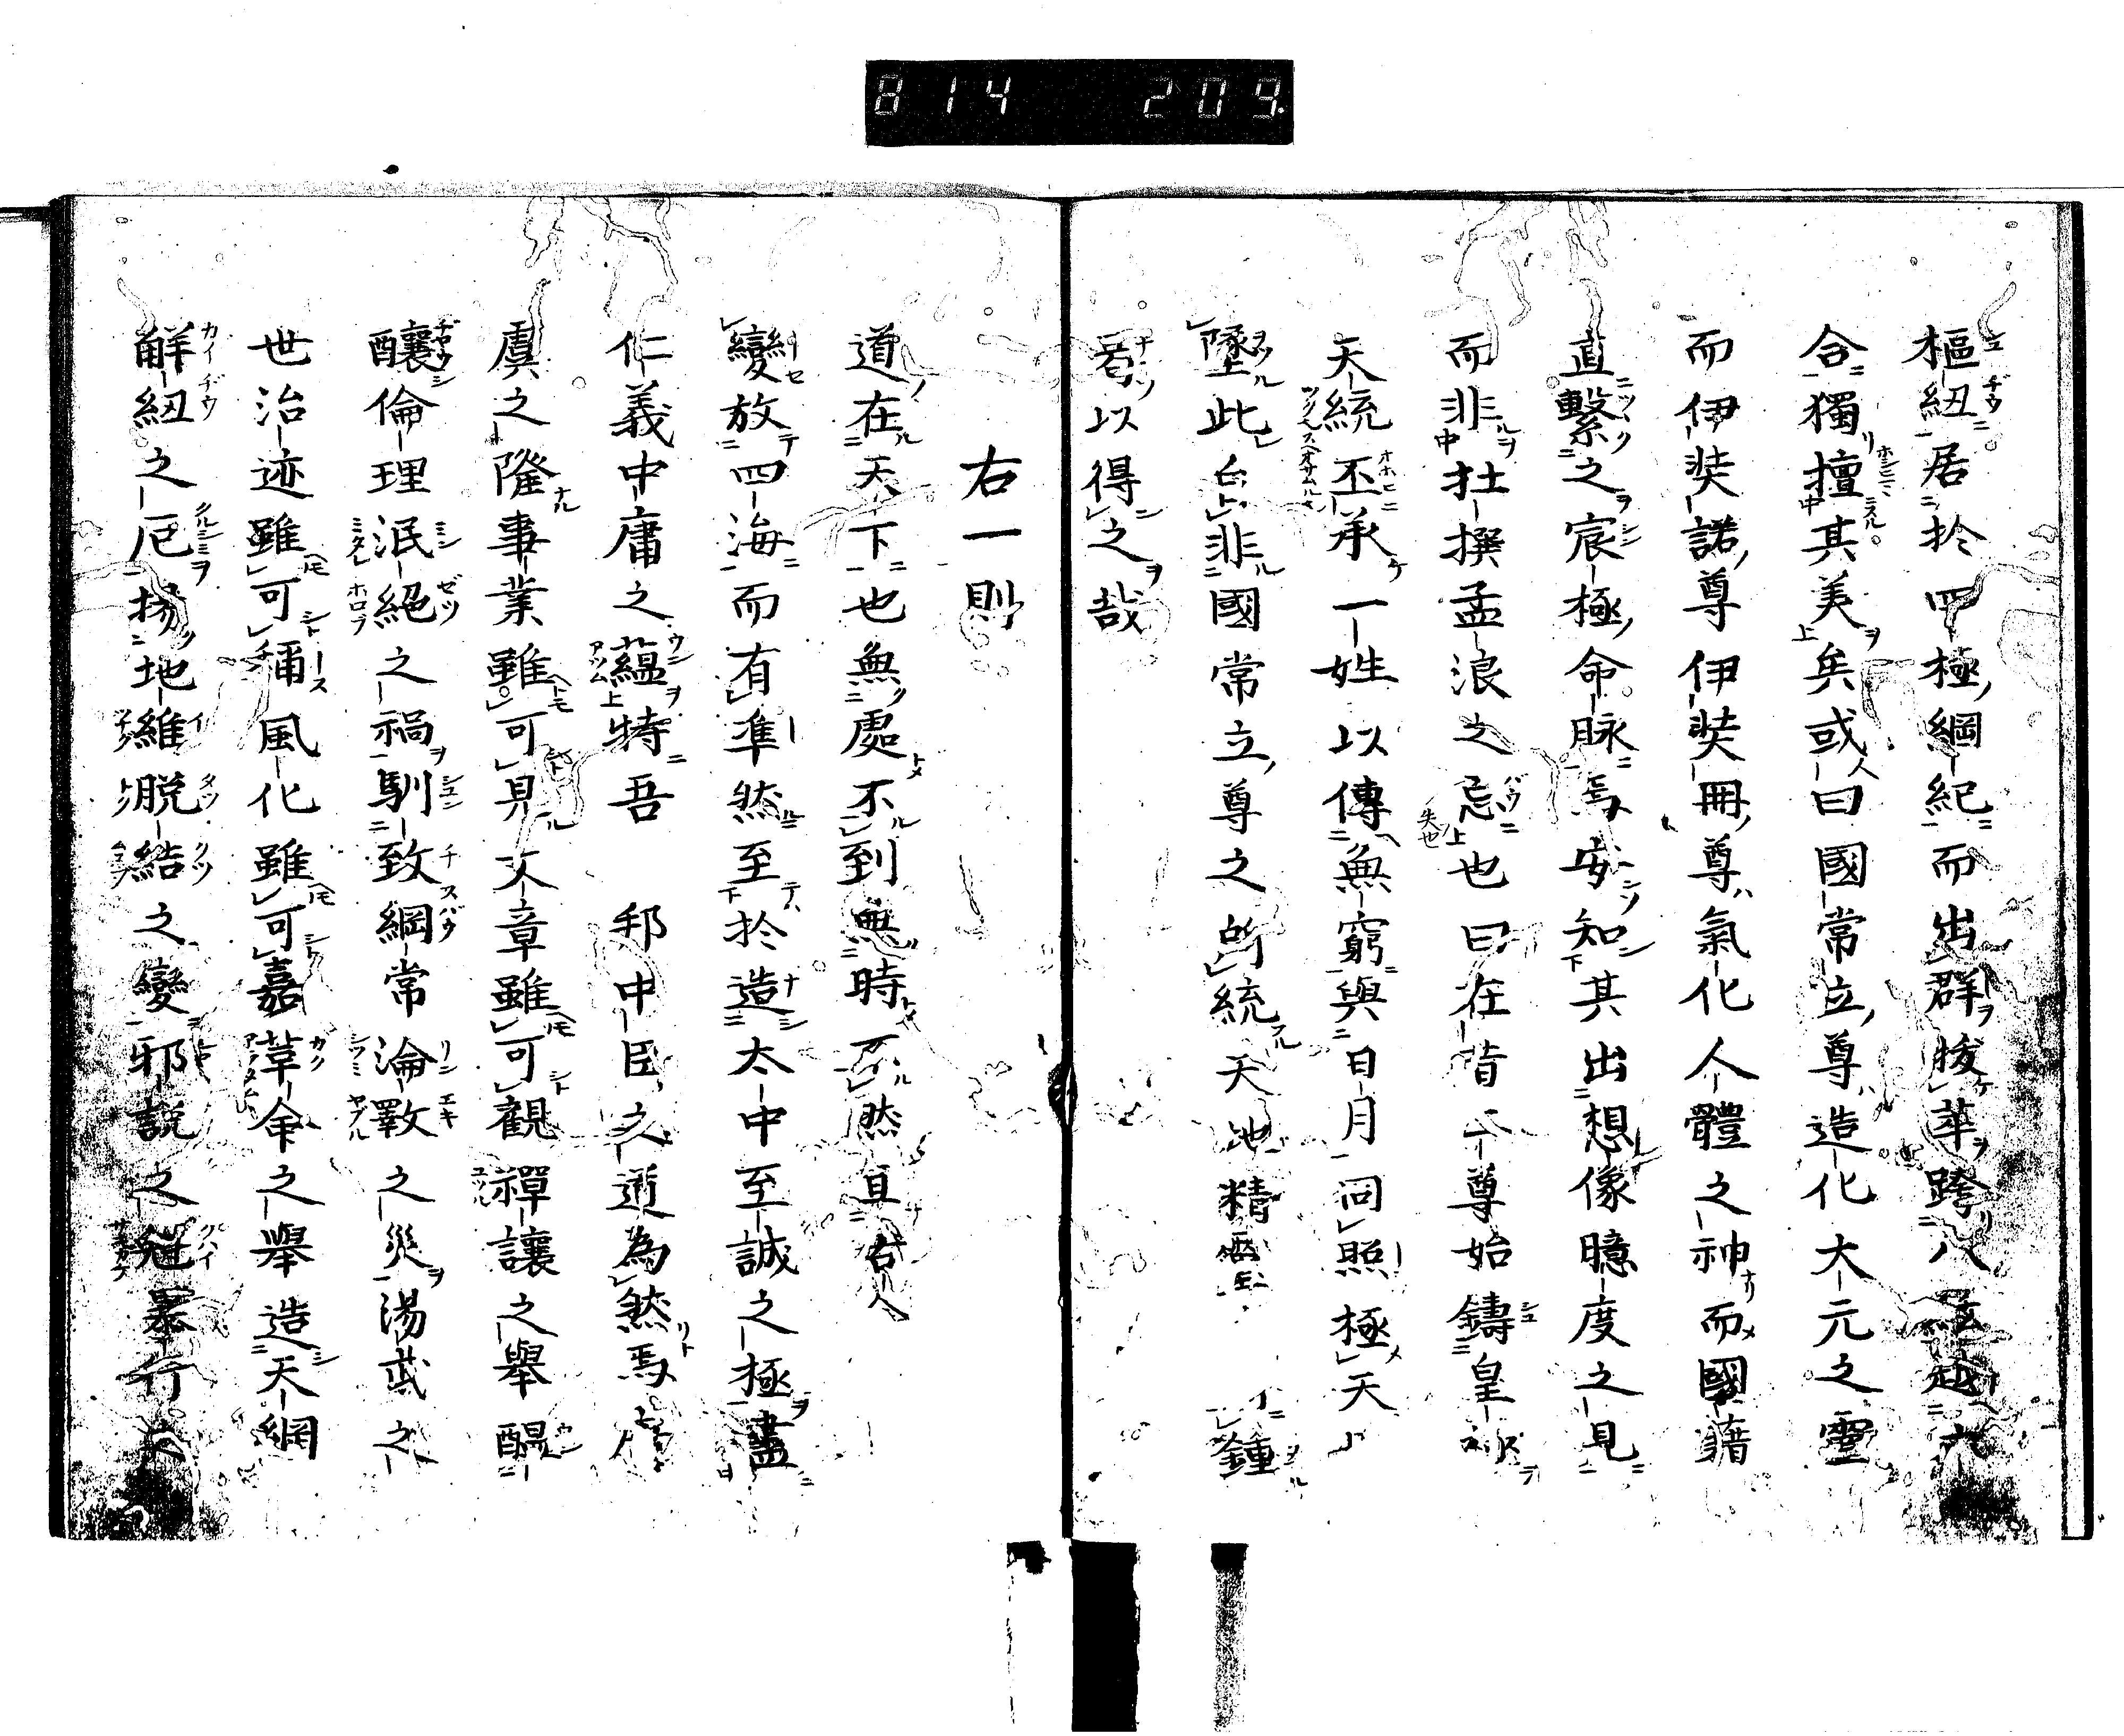 814 209.
樞紐居於四極綱紀而出群拔萃跨八紘越六
合獨擅其美矣或曰國常立尊造化大元之靈
而伊奘諾尊伊奘冊尊氣化人體之神而國籍
直繫之宸極命脉焉安知其出想像臆度之見
而非杜撰孟浪之忘也曰在昔尊始鑄皇
天統丕承一姓以傳無窮與日月同照極天
墜此非國常立尊之所統天地精鍾
者以得之哉
右一則
道在天下也無處不到無時不然亘古
變放四海而有準然至於造太中至誠之極盡
仁義中庸之蘊特吾邦中臣之道為然焉
虞之隆事業雖可見文章雖可觀禪讓之舉醞
釀倫理泯絕之禍馴致綱常淪斁之災湯武之
世治迹雖可稱風化雖可嘉革命之舉造天網
解紐之厄揚地維脫結之變邪說之
暴行